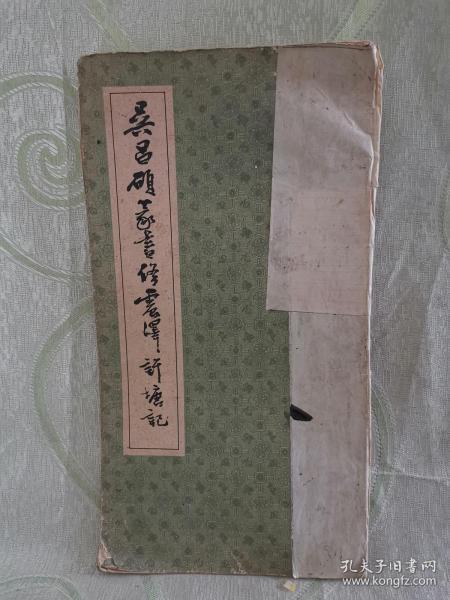 吴昌硕篆書修震澤許塘記
孔夫子旧书网
www.kongfz.com